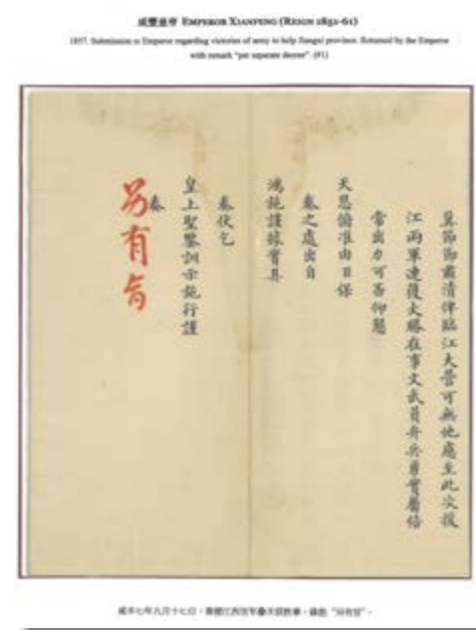 咸豐皇帝 EMPEROR XIANFENG (REIGN 1851-61)
1857. Submission to Emperor regarding victories of army to help Jiangxi province. Returned by the Emperor
with remark "per separate decree". (#1)
某節節肅清俾臨江大營可無他慮至此次援
江兩軍連獲大勝在事文武員弁兵勇實屬倍
常出力可否仰懇
天恩俯准由臣保
奏之處出自
鴻施謹據實具
奏伏乞
皇上聖鑒訓示施行謹
奏
另有旨
咸丰七年九月十七日